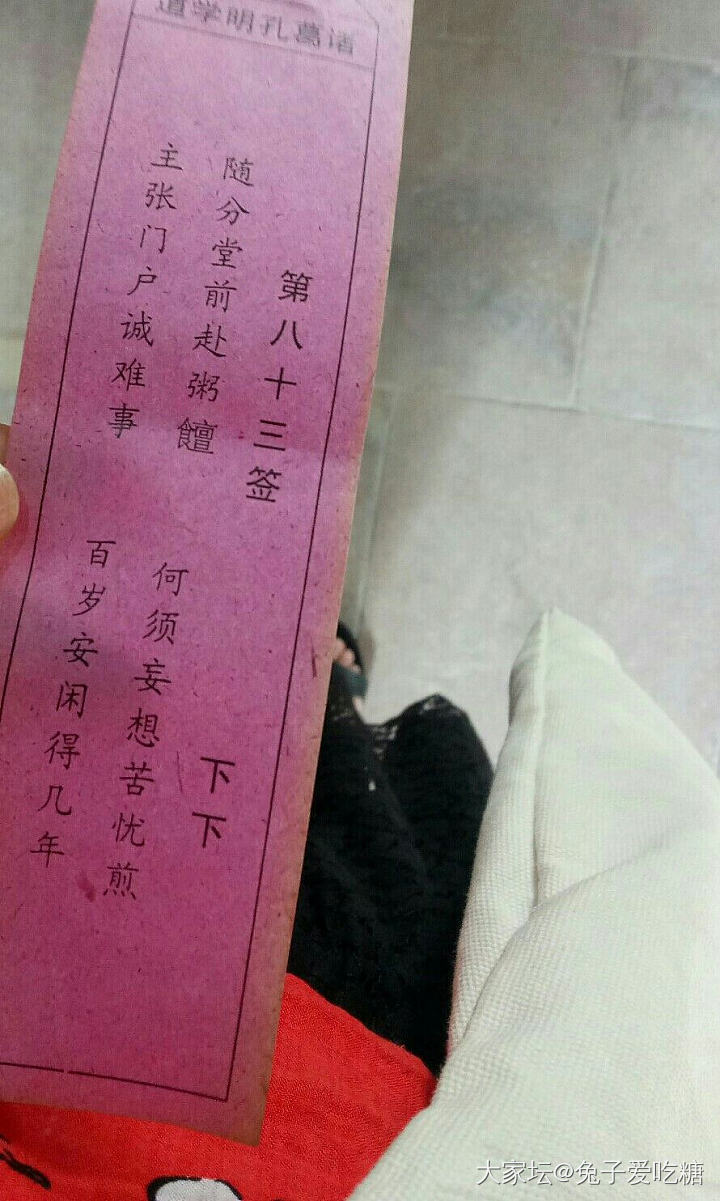 道学明孔葛诸
第八十三签
下下
随分堂前赴粥饘
何须妄想苦忧煎
主张门户诚难事
百岁安闲得几年
大家坛@兔子爱吃糖